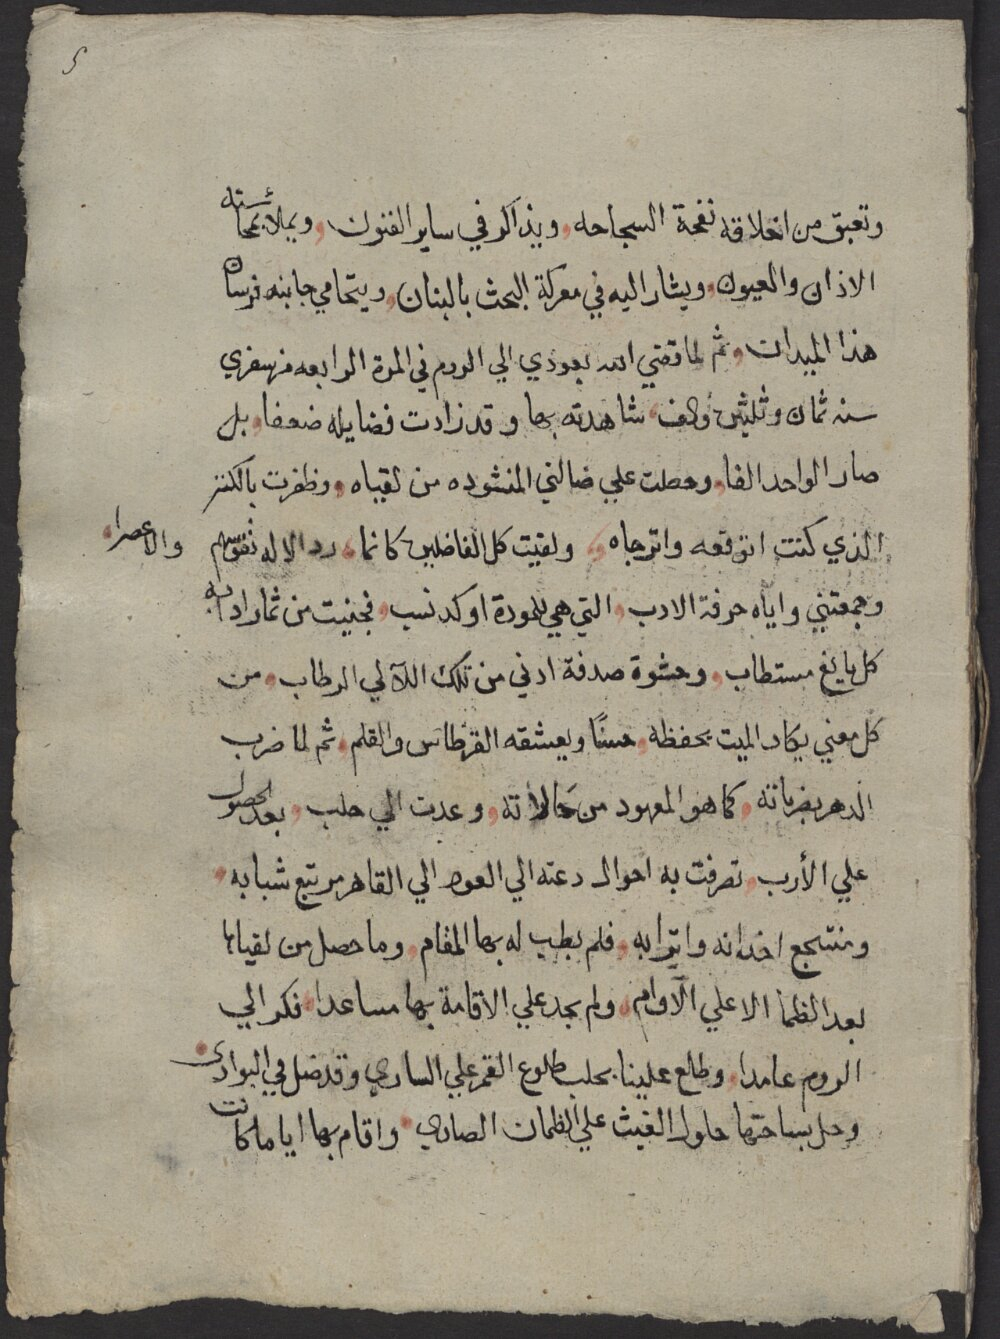 ٥
وتعبق من اخلاقه نفحة السجاحه، ويذاكر في ساير الفنون، ويملا بمحاسنه
الاذان والعيون، ويشار اليه في معركة البحث بالبنان، ويتحامي جانبه فرسان
هذا الميدان، ثم لما قضي الله بعودي الي الروم في المرة الرابعه من سفري
سنه ثمان وثلثين والف، شاهدته بها وقد زادت فضايله ضعفا، بل
صار الواحد الفا، وحصلت علي ضالتي المنشوده من لقياه، وظفرت بالكنز
الذي كنت اتوقعه واترجاه، ولقيت كل الفاضلين كانما، رد الاله نفوسهم والاعصرا،
وجمعتني واياه حرفة الادب، التي هي للمودة اوكد نسب، فجنيت من ثمار ادابه
كل يانع مستطاب، وحشوة صدفة اذني من تلك اللآلي الرطاب، من
كل معني يكاد الميت يحفظه، حسنًا ويعشقه القرطاس والقلم، ثم لما ضرب
الدهر بضرباته، كما هو المعهود من حَالاته، وعدت الي حلب، بعد الحصول
علي الأرب، تصرفت به احوال دعته الي العود الي القاهر مرتبع شبابه،
ومنتجع اخدانه واترابه، فلم يطب له بها المقام، وما حصل من لقياها
بعد الظما الا علي الآوام، ولم يجد علي الاقامة بها مساعدا، فكر الي
الروم عامدا، وطلع علينا بحلب طلوع القمر علي الساري وقد ضل في البوادي،
وحل بساحتها حلول الغيث علي الظمان الصادي، واقام بها اياما كانت